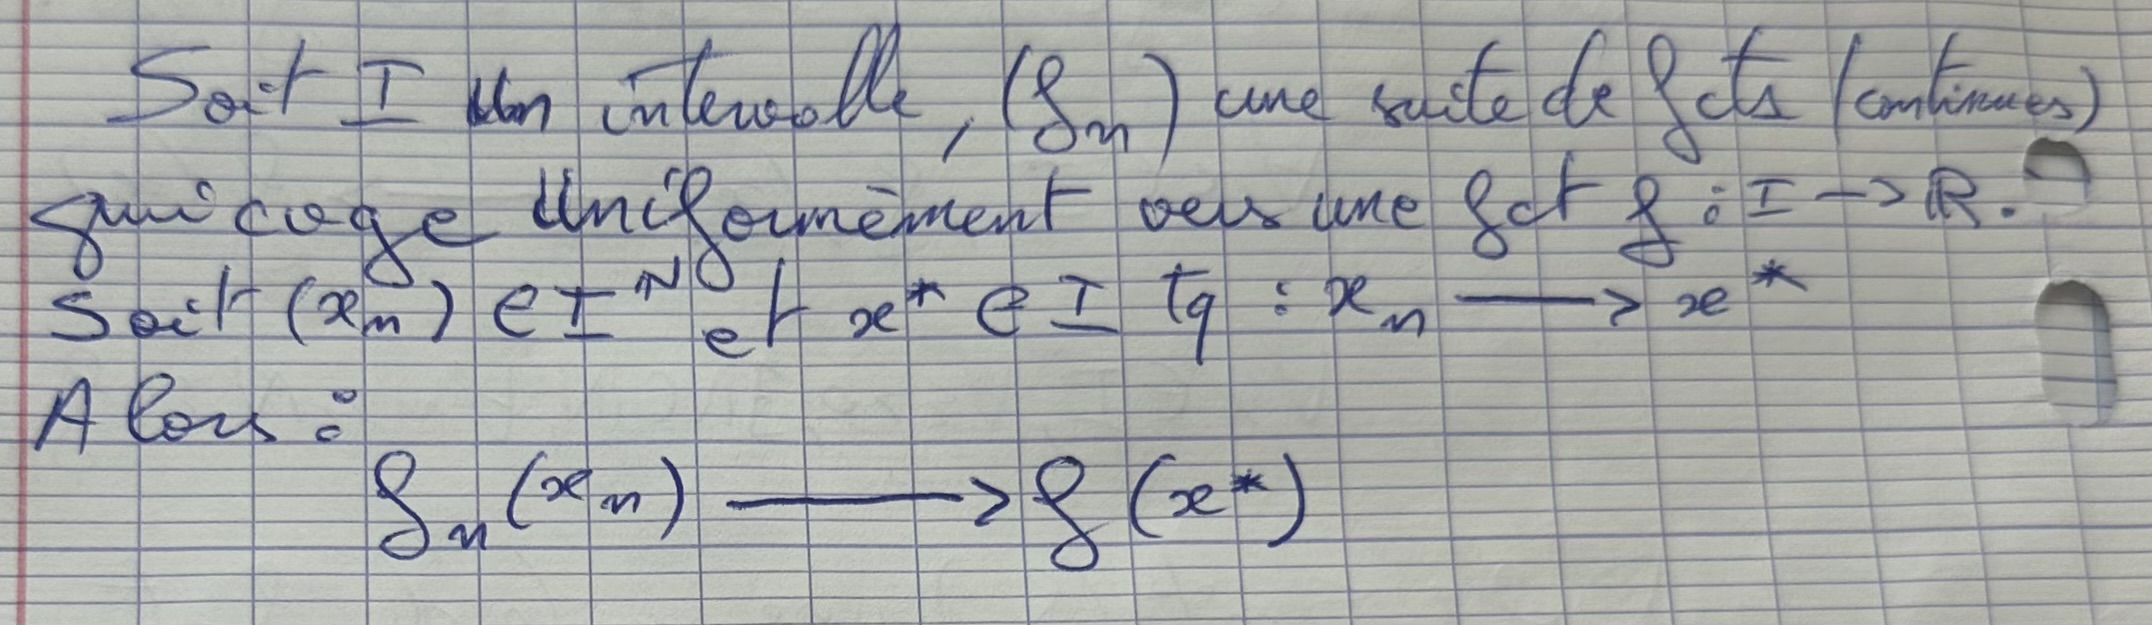 Soit I un intervalle, (fn) une suite de fcts (continues)
qui cvge Uniformèment vers une fct f : I -> R.
Soit (xn) ∈ I^N et x* ∈ I tq : xn ⟶ x*
Alors :
fn(xn) ⟶ f(x*)